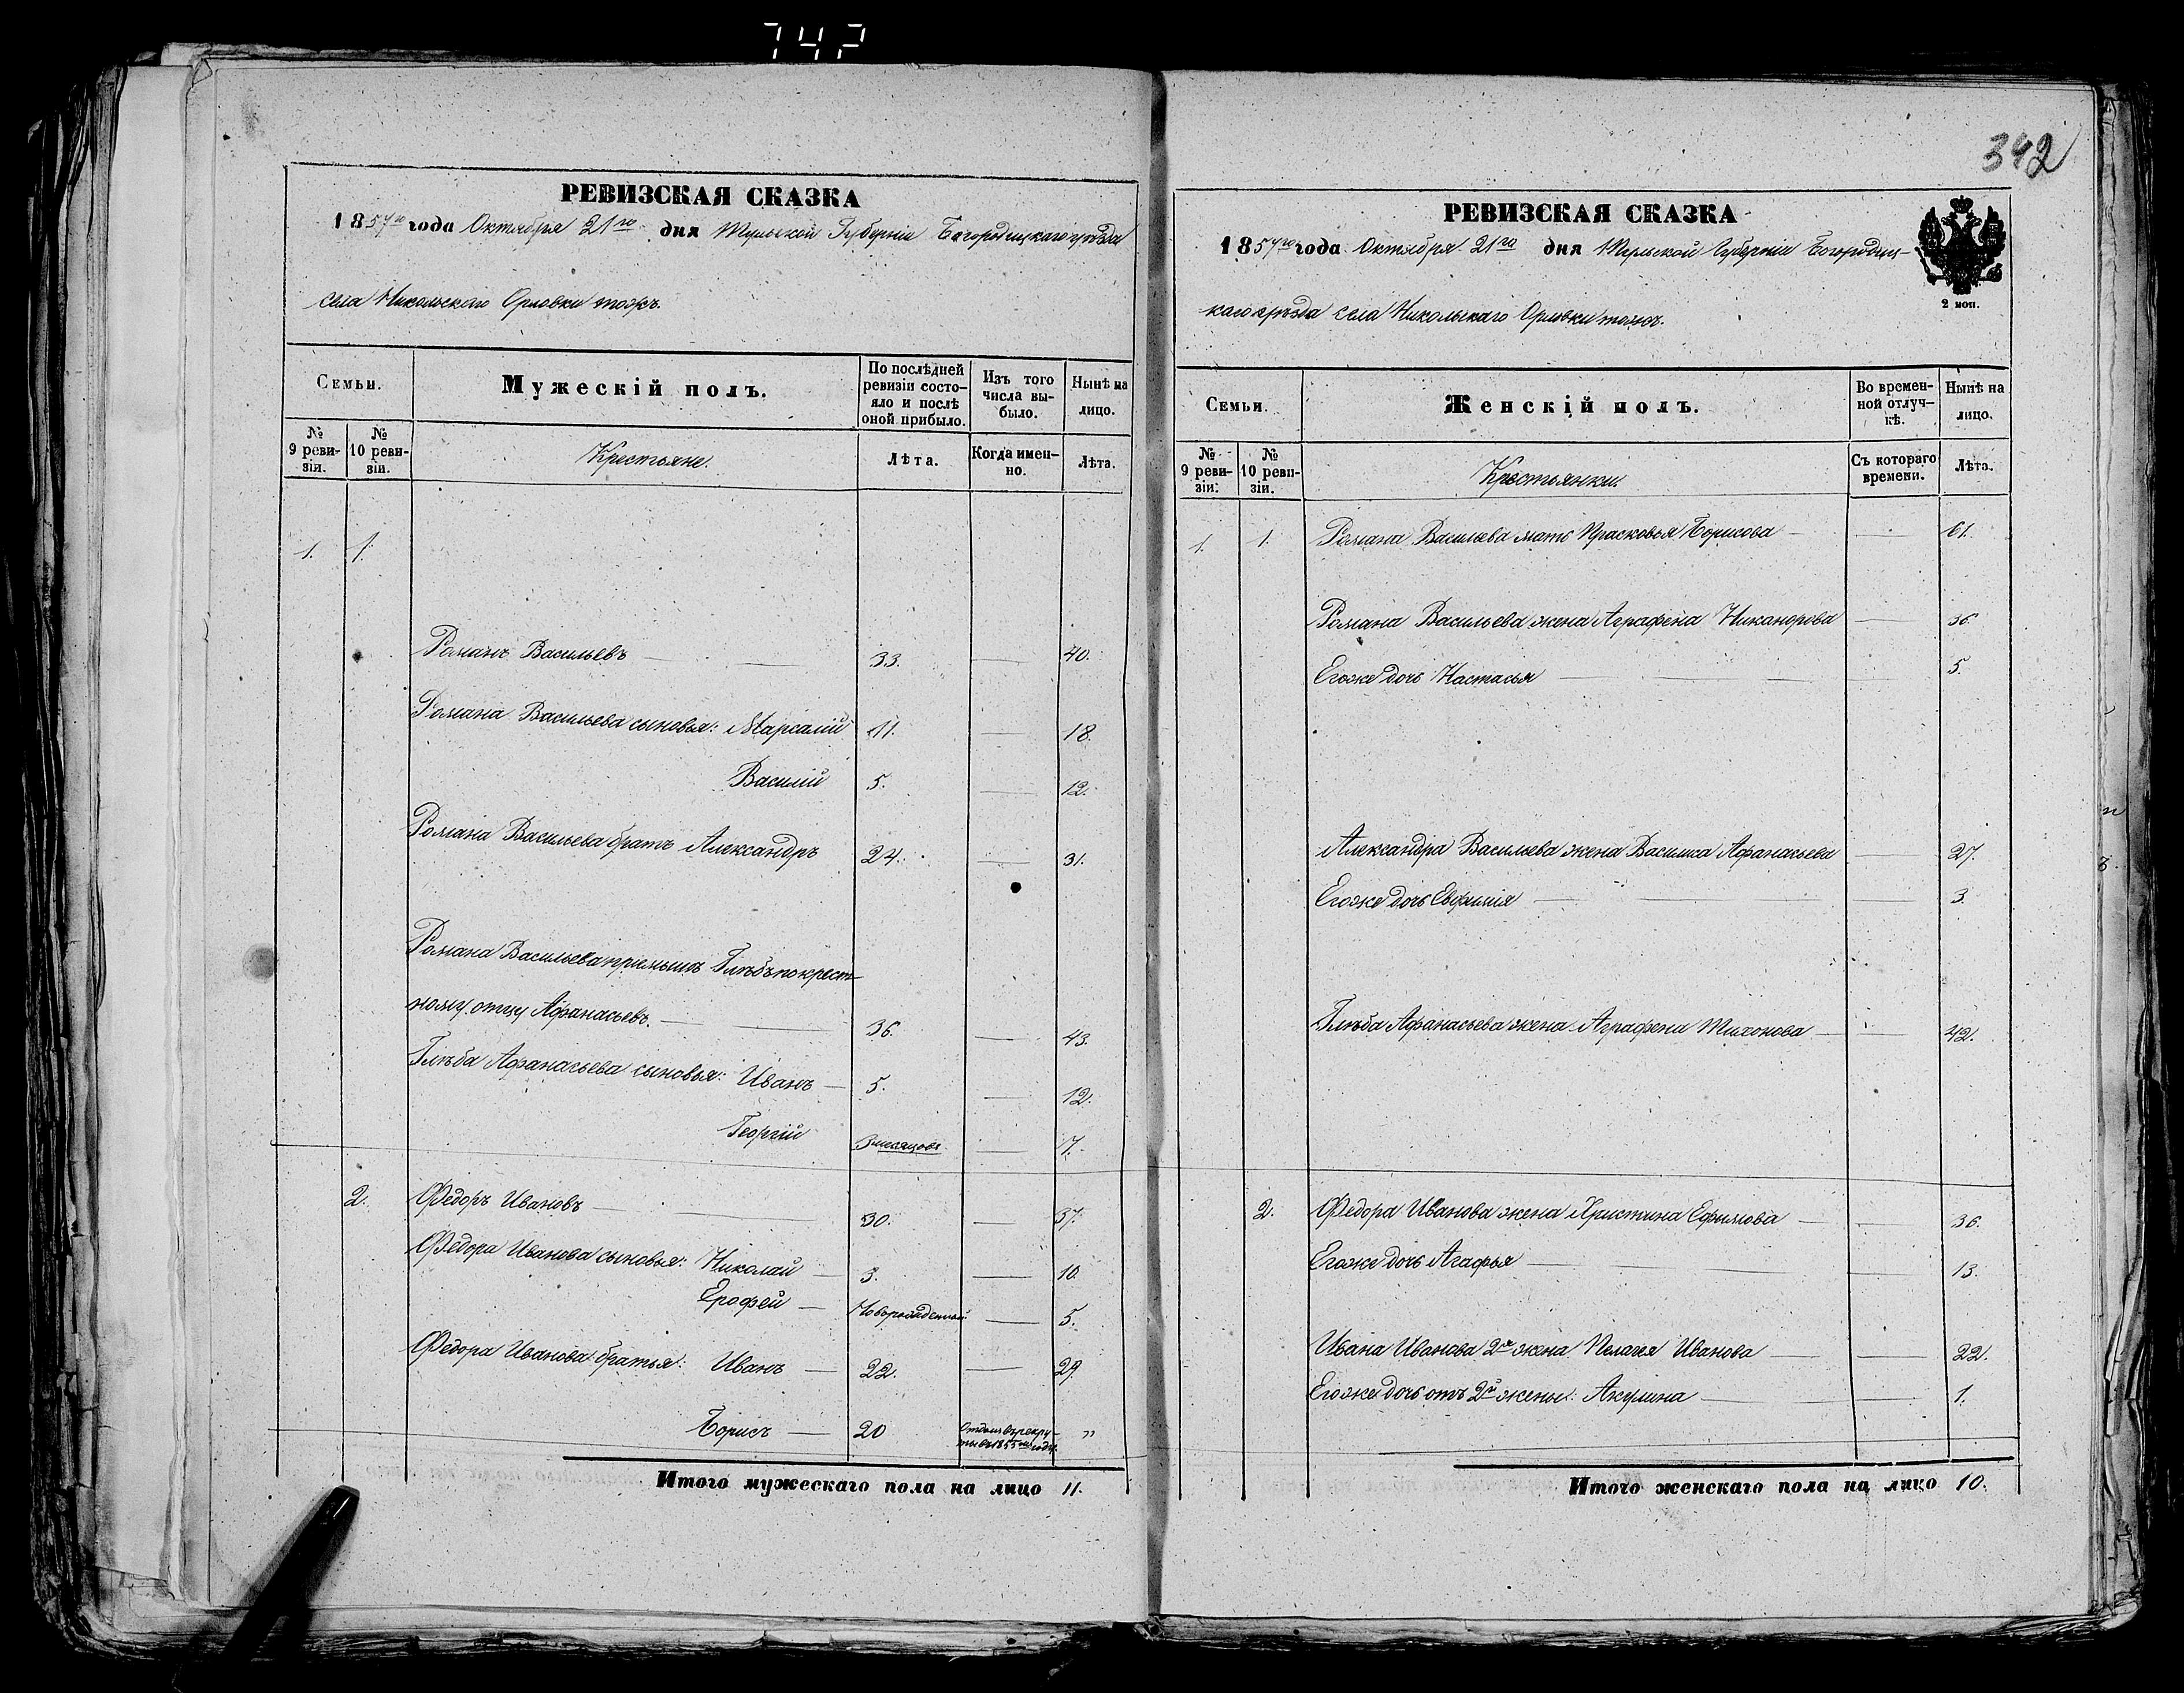 742
РЕВИЗСКАЯ СКАЗКА
1857го года Октября 21го дня Тульской Губерніи Богородицкаго уѣзда
села Никольскаго Орловки тожъ.
Семьи.
Мужескій полъ.
По послѣдней ревизіи состояло и послѣ оной прибыло.
Изъ того числа выбыло.
Нынѣ на лицо.
№ 9 ревизіи.
№ 10 ревизіи.
Крестьяне.
Лѣта.
Когда именно.
Лѣта.
1. 1.
Романъ Васильевъ — 33. — 40.
Романа Васильева сыновья: Марсалій 11. — 18.
Василій 5. — 12.
Романа Васильева братъ Александръ 24. — 31.
Романа Васильева пріемышъ Глѣбъ по крест-
ному отцу Афанасьевъ. — 36. — 43.
Глѣба Афанасьева сыновья: Иванъ — 5. — 12.
Георгій 3 месяцовъ — 7.
2. Федоръ Ивановъ — 30. — 37.
Федора Иванова сыновья: Николай — 3. — 10.
Ерофей — Новорожденный — 5.
Федора Иванова братья: Иванъ — 22. — 29.
Борисъ — 20 Отданъ въ рекру-
ты въ 1855 году. "
Итого мужескаго пола на лицо 11.
342
РЕВИЗСКАЯ СКАЗКА
1857го года Октября 21го дня Тульской Губерніи Богородиц-
каго уѣзда села Никольскаго Орловки тожъ.
2 коп.
Семьи.
Женскій полъ.
Во временной отлучкѣ.
Нынѣ на лицо.
№ 9 ревизіи.
№ 10 ревизіи.
Крестьянки.
Съ котораго времени.
Лѣта.
1. 1. Романа Васильева мать Прасковья Борисова — 61.
Романа Васильева жена Аграфена Никанорова — 36.
Егоже дочь Настасья — 5.
Александра Васильева жена Василиса Афанасьева — 27.
Егоже дочь Евфимія — 3.
Глѣба Афанасьева жена Аграфена Тихонова — 42.
2. Федора Иванова жена Христина Ефимова — 36.
Егоже дочь Агафья — 13.
Ивана Иванова 2я жена Пелагея Иванова — 22.
Егоже дочь отъ 2й жены: Акулина — 1.
Итого женскаго пола на лицо 10.